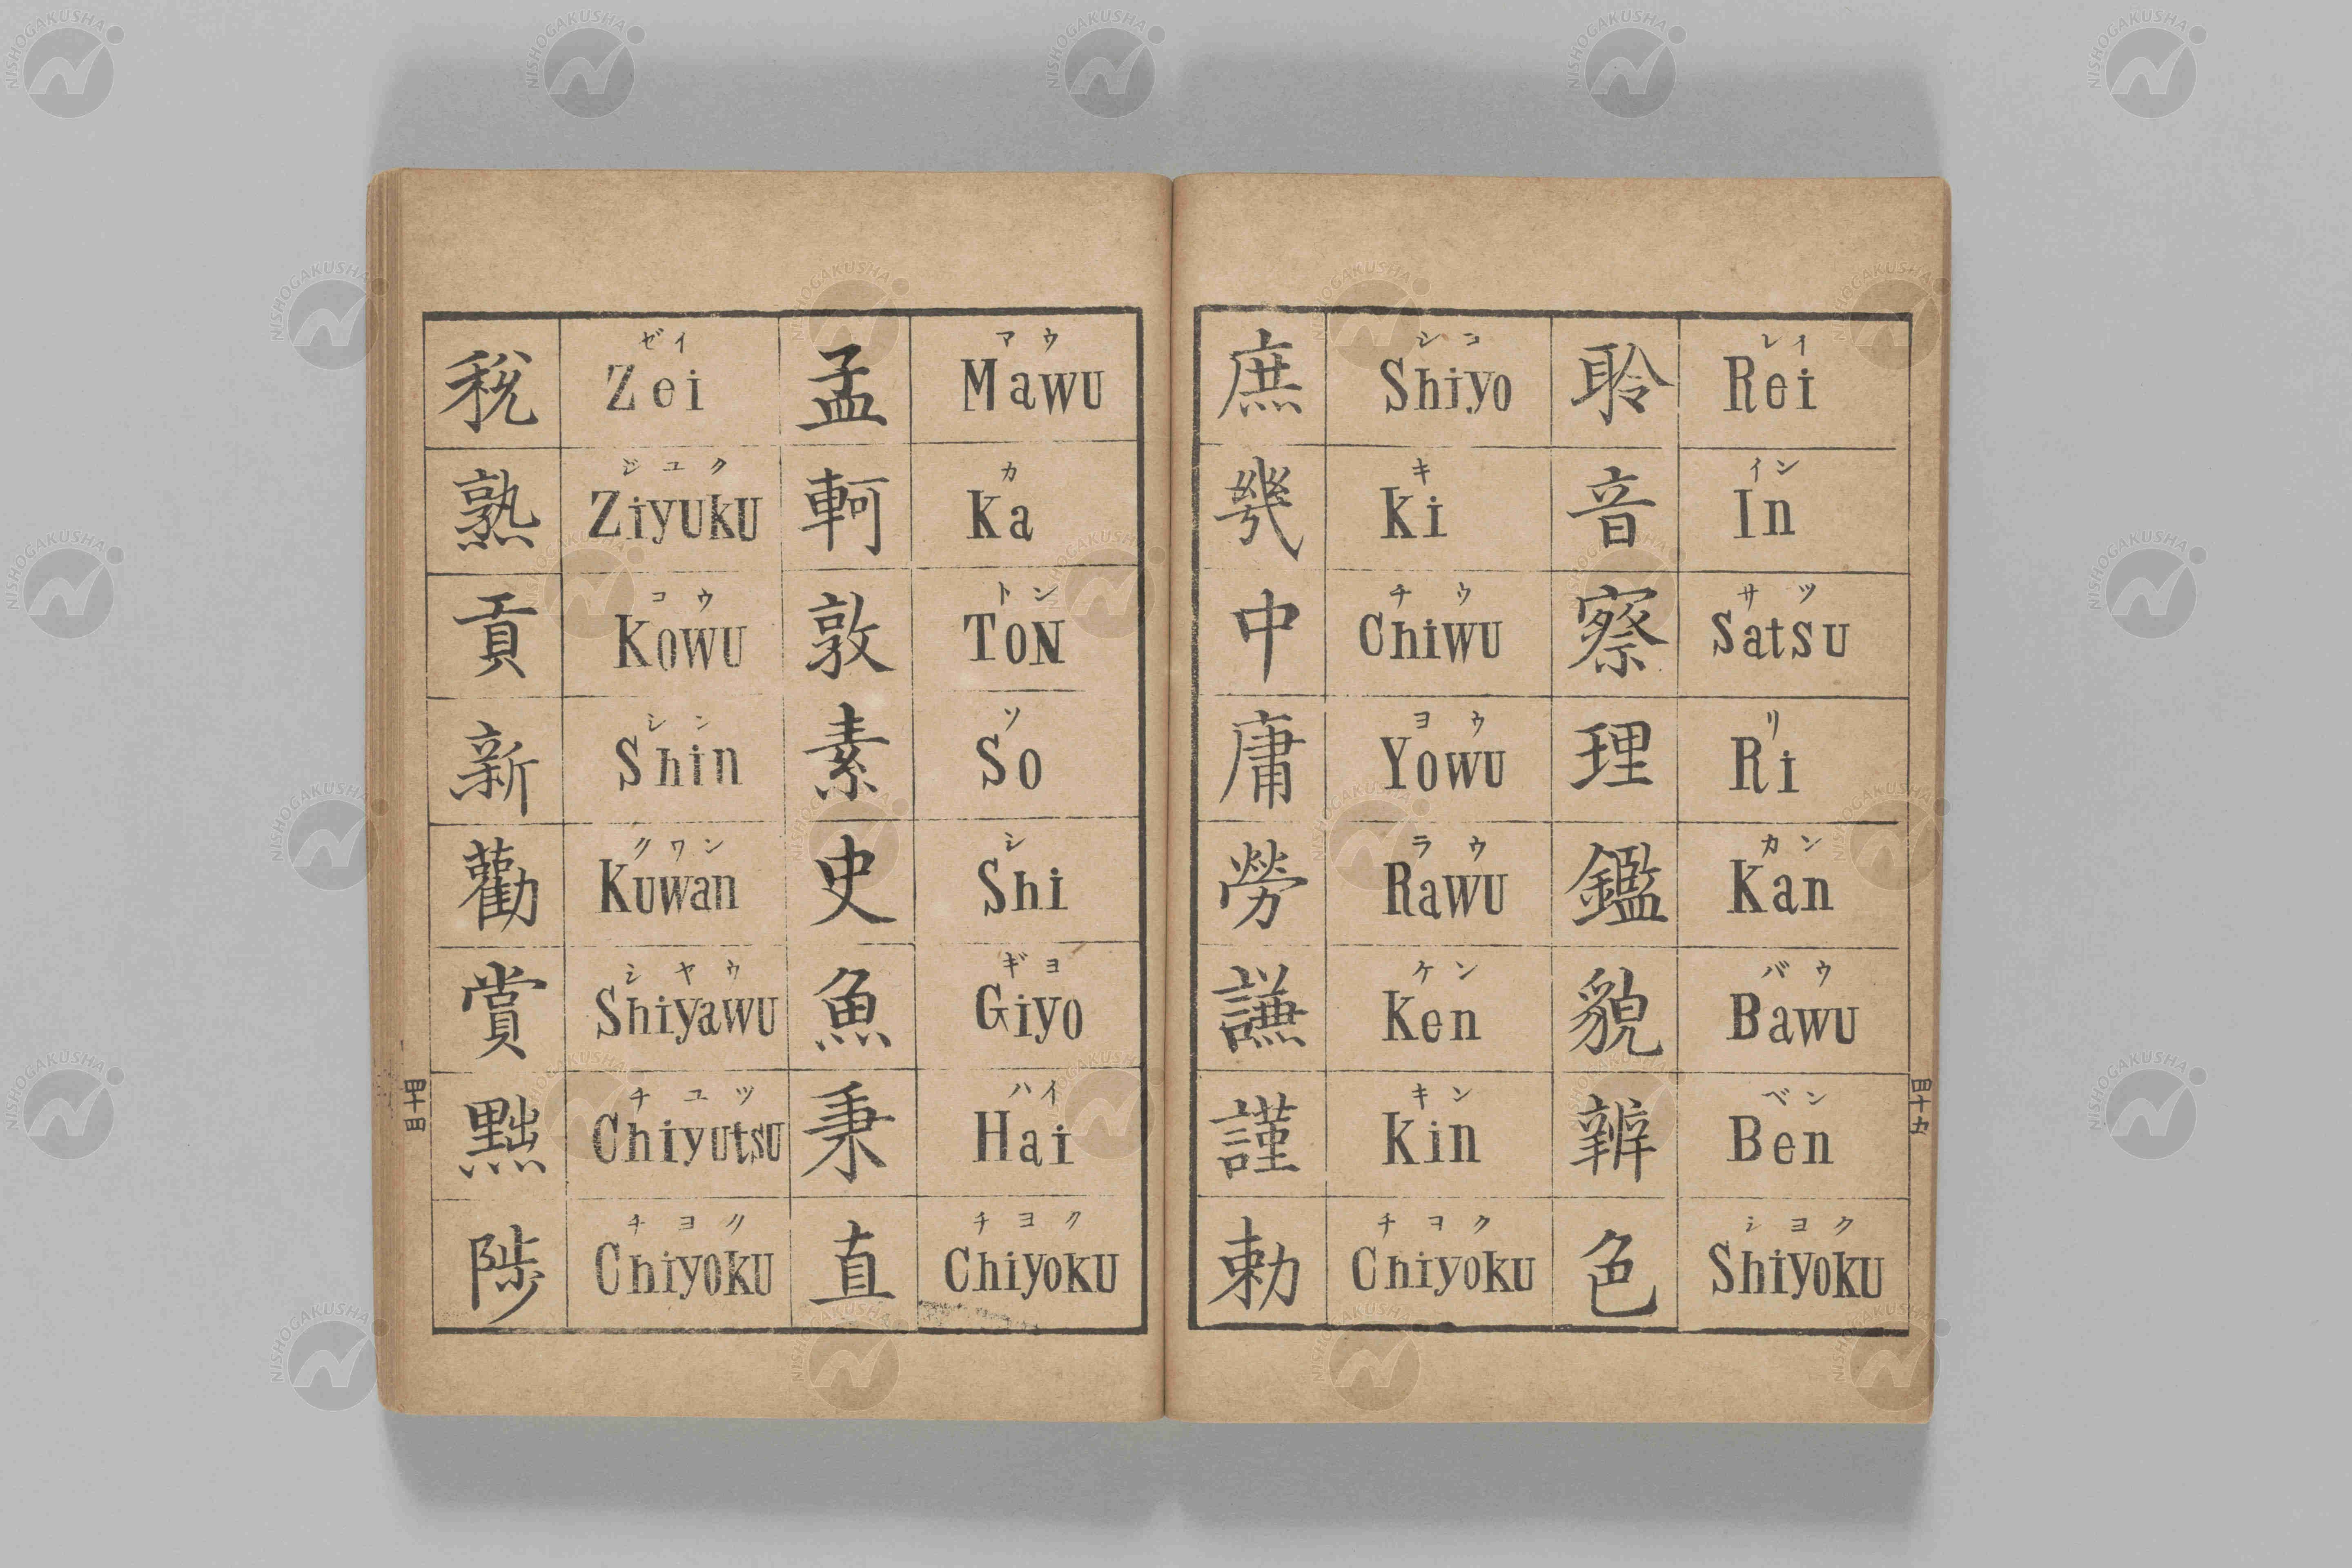 税熟貢新勸賞黜陟
ゼイ
Zei
ジユク
Ziyuku
コウ
Kowu
シン
Shin
クワン
Kuwan
シヤウ
Shiyawu
チユツ
Chiyutsu
チヨク
Chiyoku
孟軻敦素史魚秉直
マウ
Mawu
カ
Ka
トン
Ton
ソ
So
シ
Shi
ギヨ
Giyo
ハイ
Hai
チヨク
Chiyoku
庶幾中庸勞謙謹勅
シヨ
Shiyo
キ
Ki
チウ
Chiwu
ヨウ
Yowu
ラウ
Rawu
ケン
Ken
キン
Kin
チヨク
Chiyoku
聆音察理鑑貌辨色
レイ
Rei
イン
In
サツ
Satsu
リ
Ri
カン
Kan
バウ
Bawu
ベン
Ben
シヨク
Shiyoku
NISHOGAKUSHA